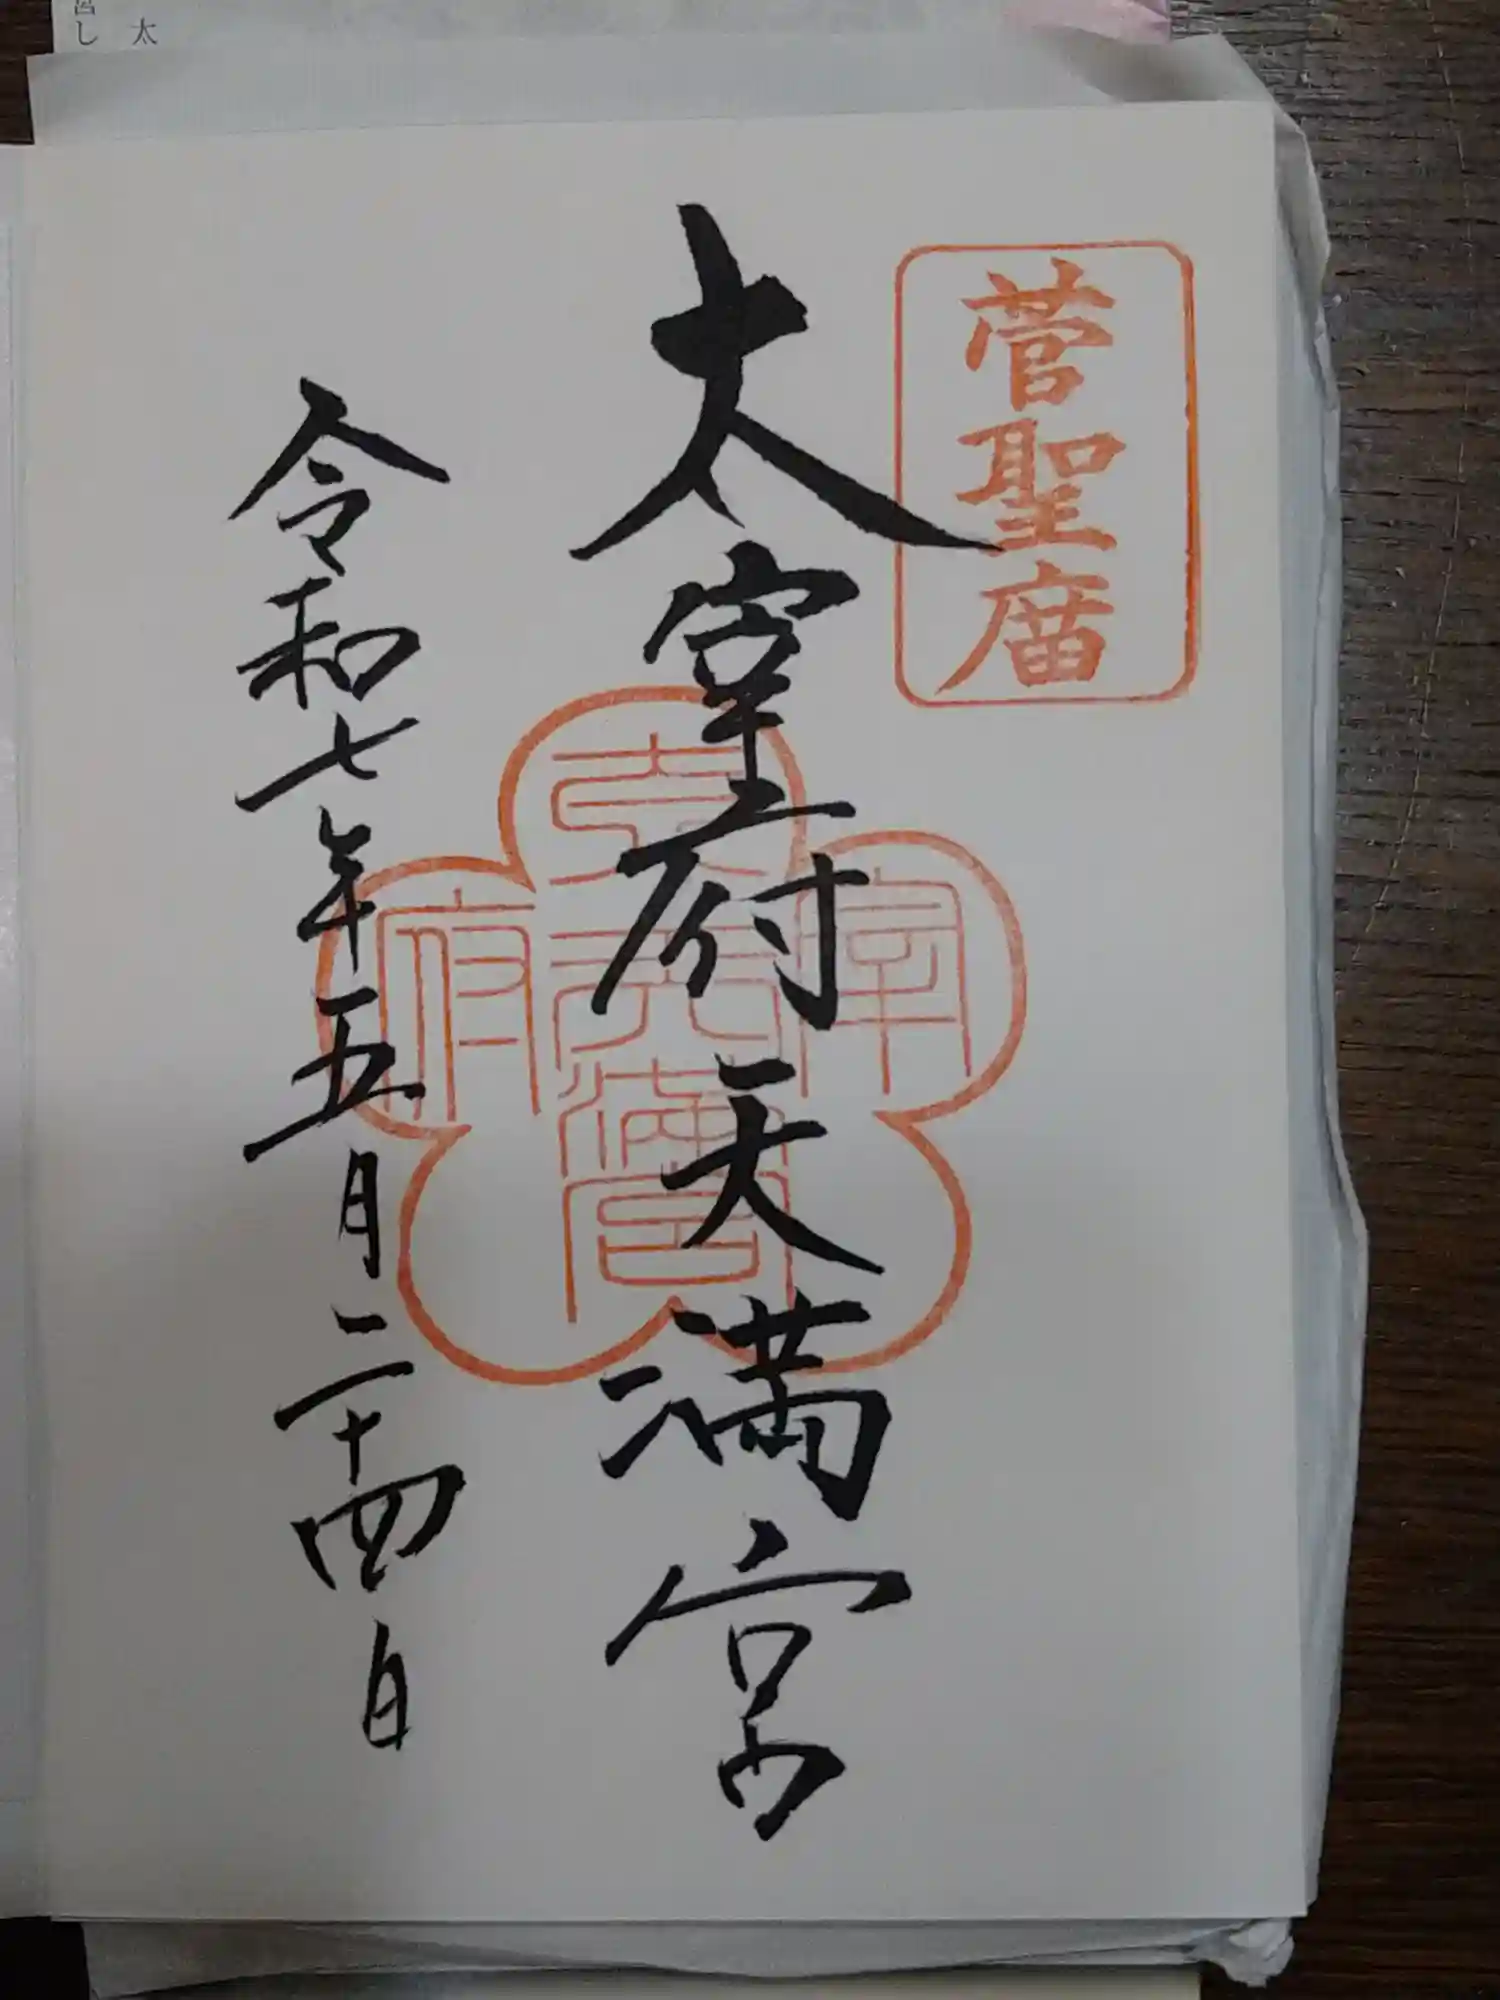 菅聖廟
太宰府天満宮
太宰府天満宮
令和七年五月二十四日
太
宮し